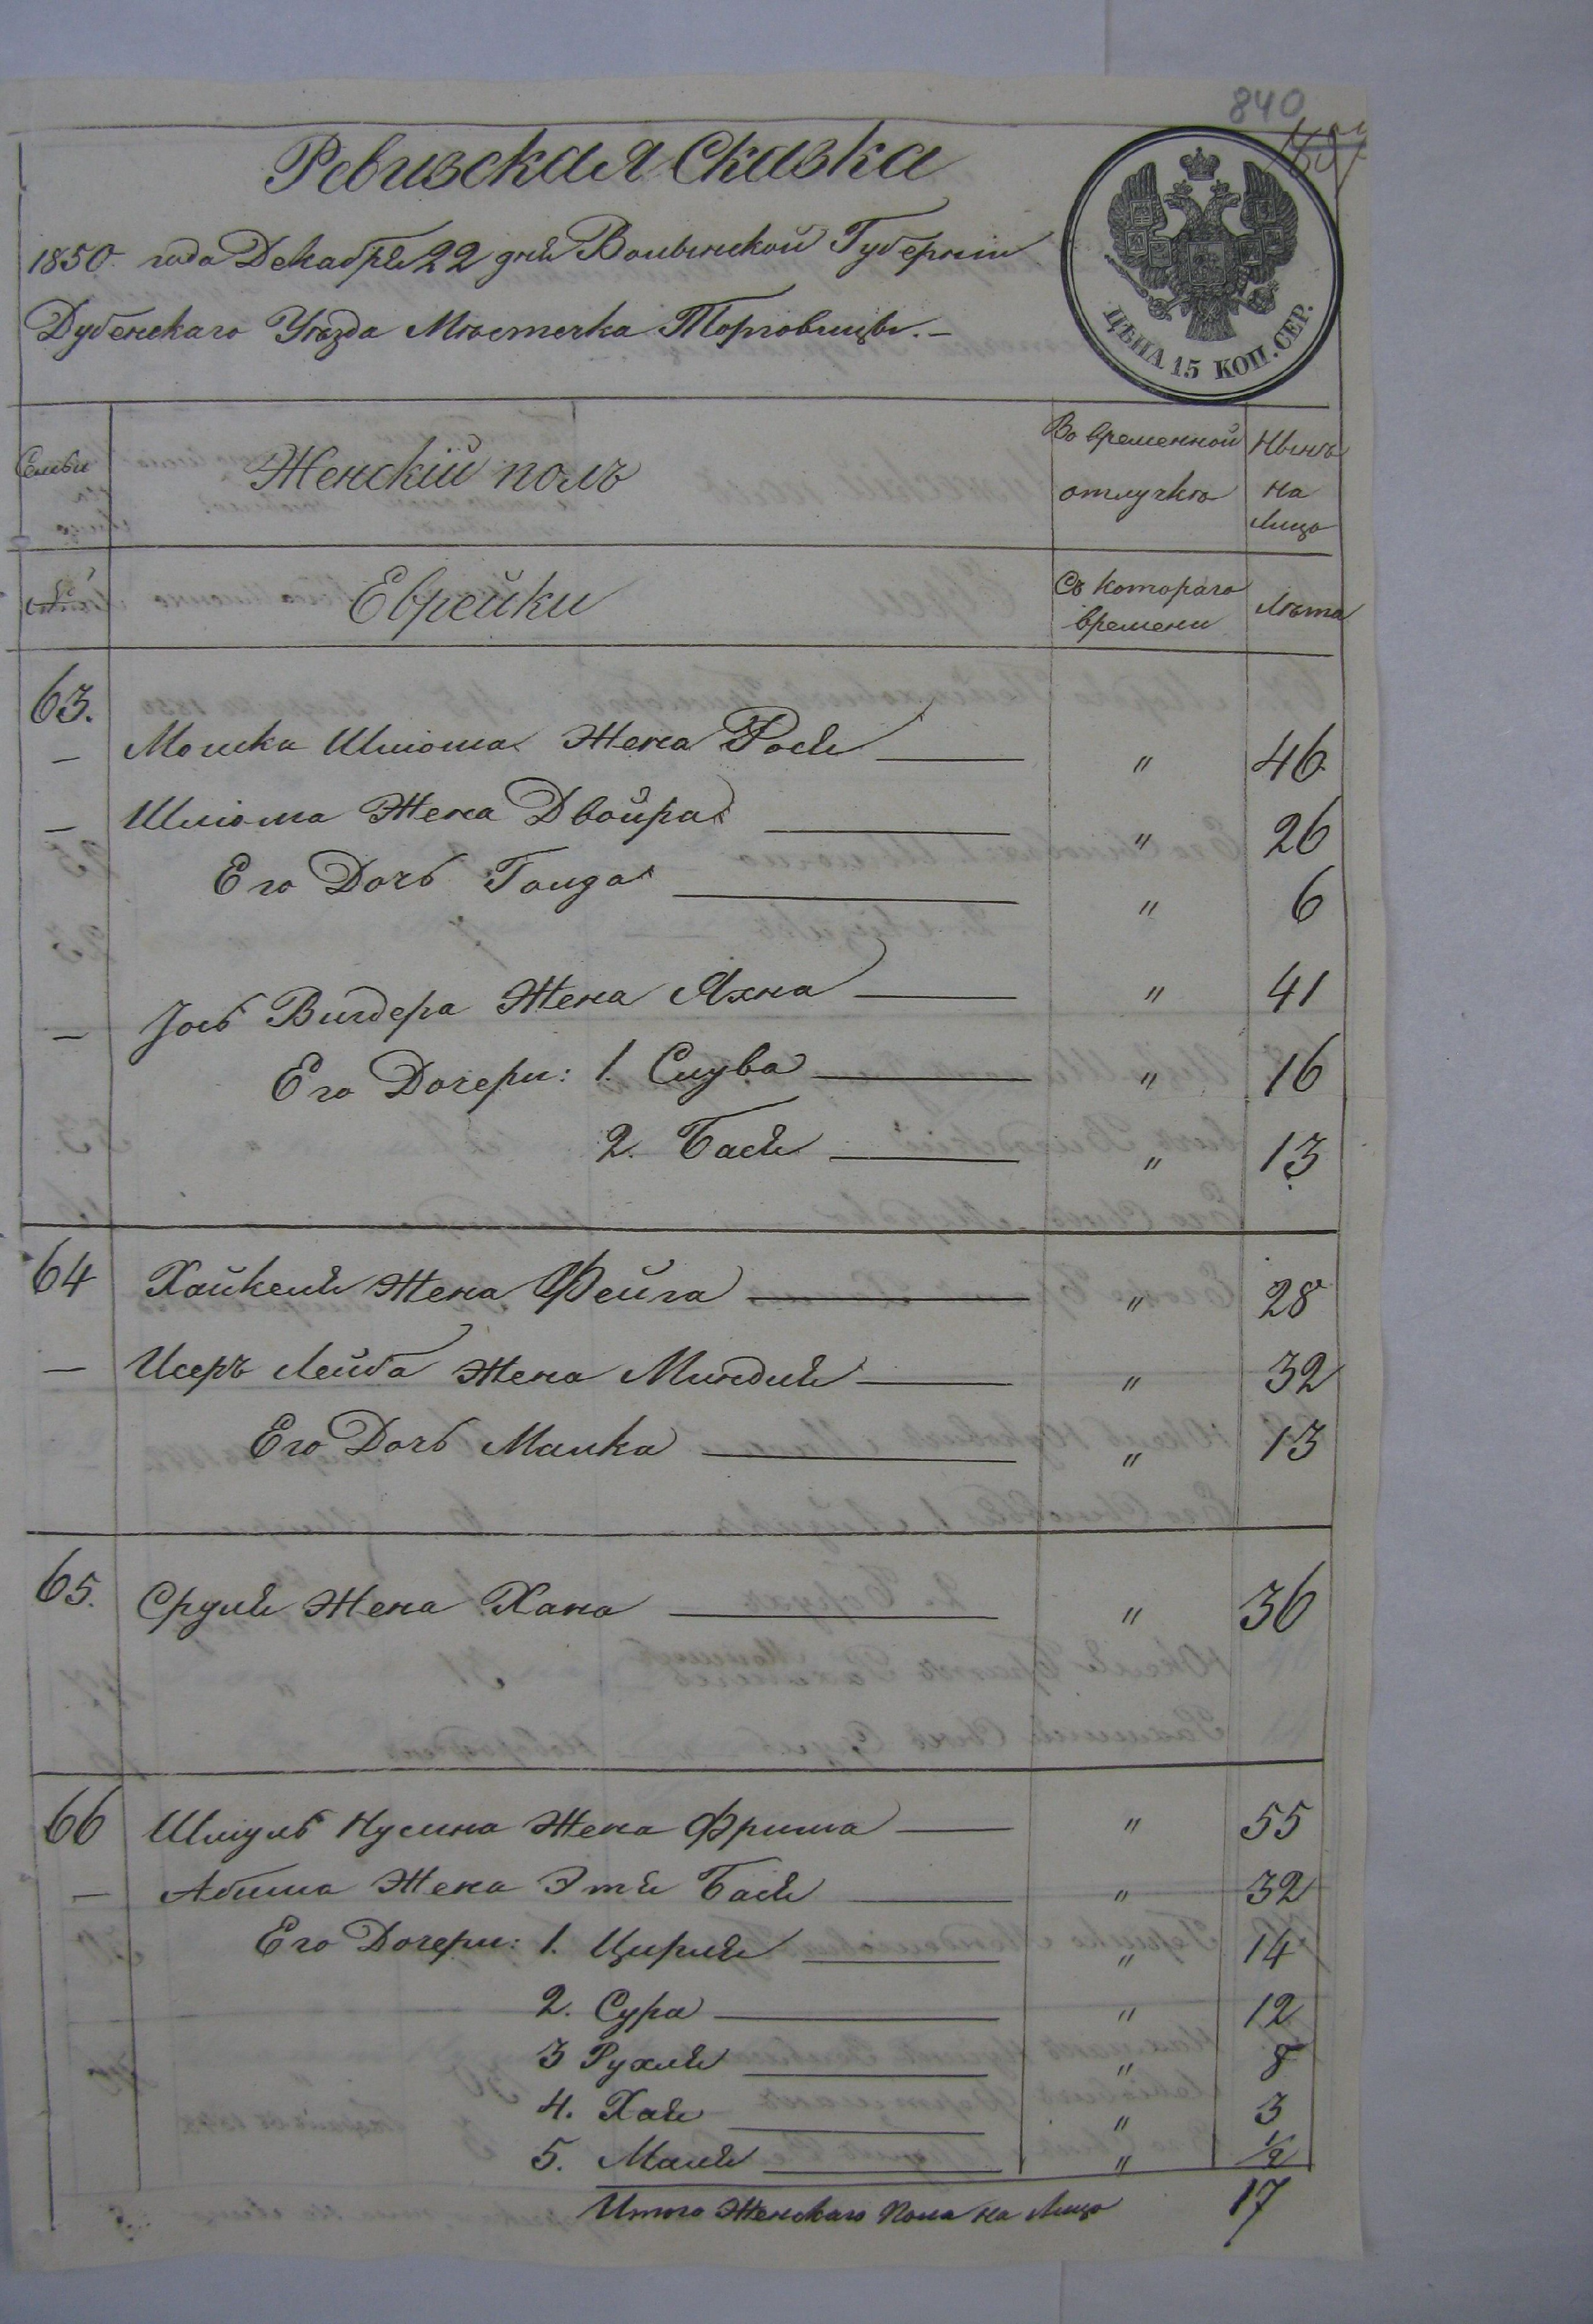 840
Ревизская Сказка
1850 года Декабря 22 дня Волынской Губернии
Дубенскаго Уѣзда Мѣстечка Торговицы. –
ЦѢНА 15 КОП. СЕР.
Семьи
Женскій полъ
Во временной отлучкѣ
Нынѣ на лицо
Еврейки
Съ котораго времени
Лѣта
63.
– Мошка Шлiома Жена Рося — " 46
– Шлiома Жена Двойра — " 26
Его Дочь Голда — " 6
– Iось Вигдера Жена Яхна — " 41
Его Дочери: 1. Слува — " 16
2. Бася — " 13
64 Хайкеля Жена Фейга — " 28
– Исеръ Лейба Жена Миндля — " 32
Его Дочь Малка — " 13
65. Сруля Жена Хана — " 36
66 Шмуль Нусина Жена Фрима — " 55
– Абиша Жена Этя Бася — " 32
Его Дочери: 1. Цирля — " 14
2. Сура — " 12
3 Рухля — " 8
4. Хая — " 3
5. Маля — " 1/2
Итого Женскаго Пола на Лицо 17